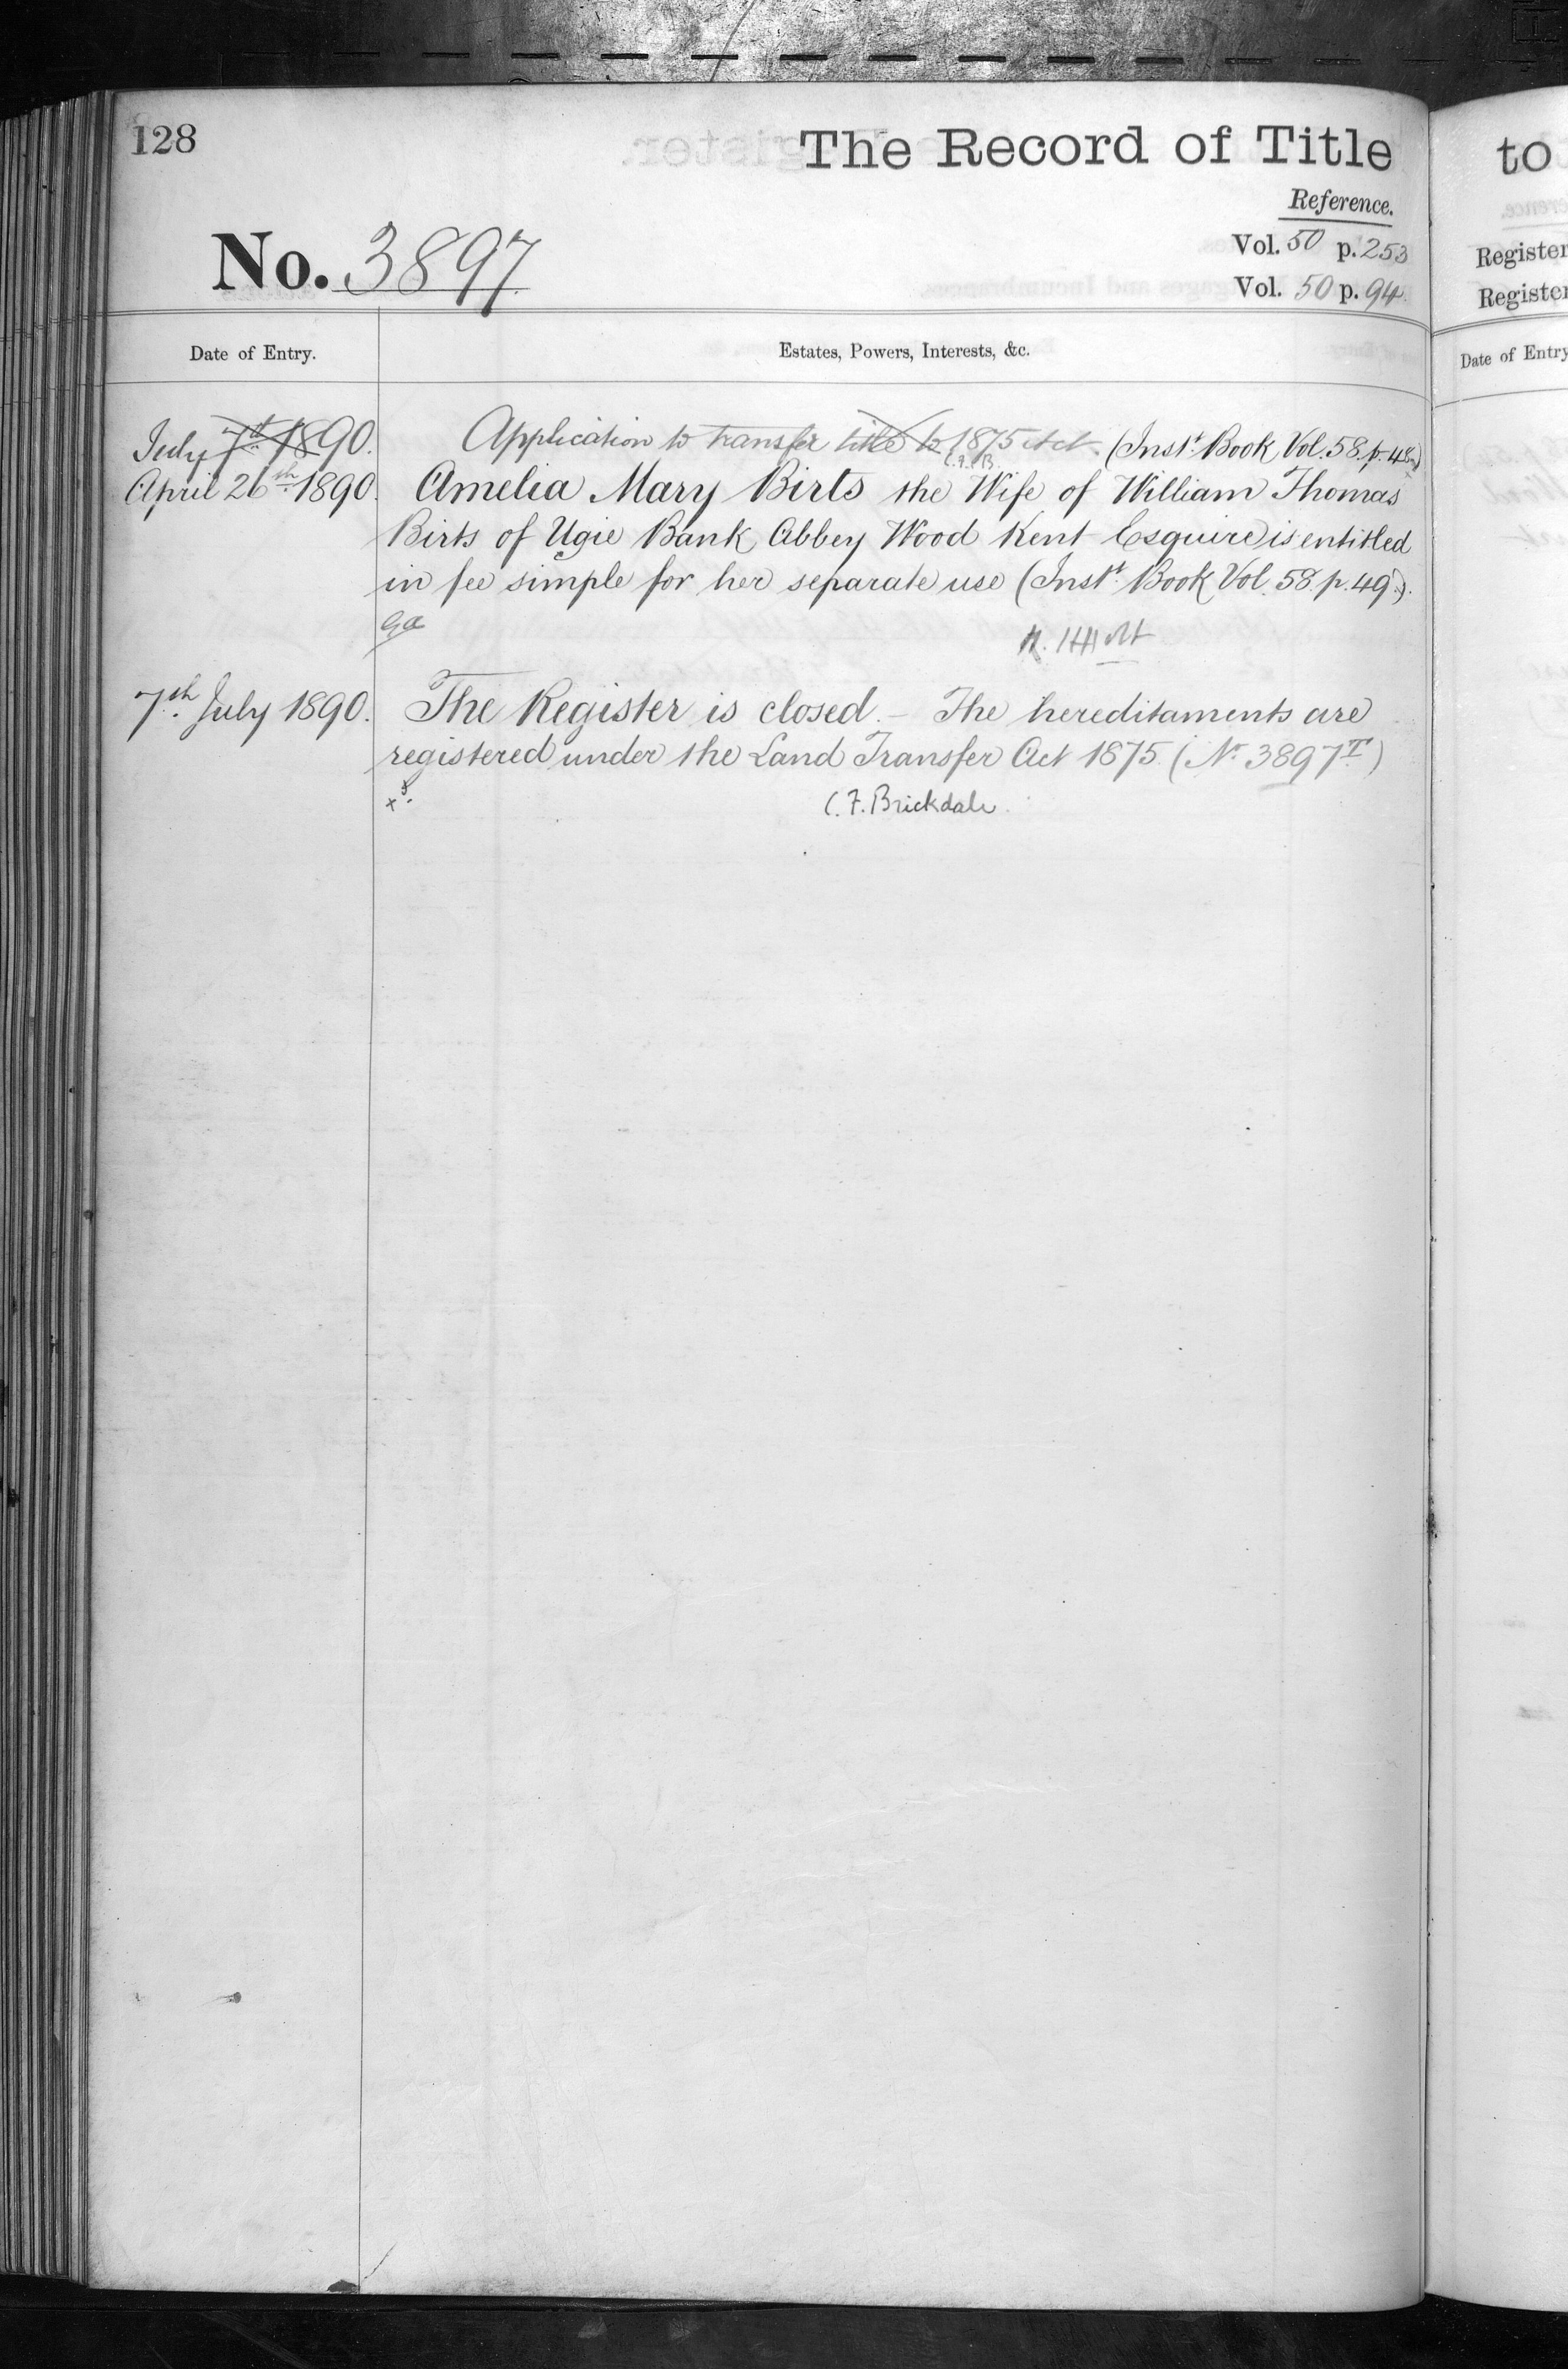 128
The Record of Title
to
Reference.
No. 3897
Vol. 50 p. 253
Register
Vol. 50 p. 94
Register
Date of Entry.
Estates, Powers, Interests, &c.
Date of Entry
July 7th 1890. Application to transfer title to 1875 Act. (Instt. Book Vol. 58. p. 48)
C.F.B.
April 26th 1890. Amelia Mary Birts the Wife of William Thomas
Birts of Ugie Bank Abbey Wood Kent Esquire is entitled
in fee simple for her separate use (Instt. Book Vol. 58. p. 49).
7th July 1890. The Register is closed. – The hereditaments are
registered under the Land Transfer Act 1875. (No. 3897T)
C. F. Brickdale.